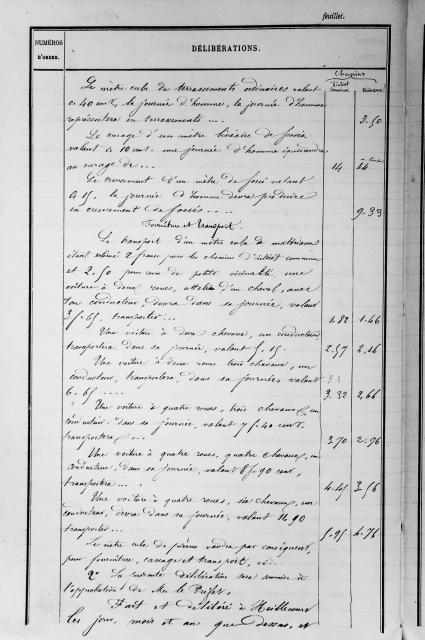 feuillet.
NUMÉROS
D'ORDRE.
DÉLIBÉRATIONS.
Chemins
d'intérêt
commun
Vicinaux
Le mètre cube de terrassements ordinaires valant
0,40 cent, la journée d'homme, la journée d'homme
représentera en terrassements ... 3.50
Le curage d'un mètre linéaire de fossés
valant 0,10 cent. une journée d'homme équivaudra
au curage de ... 14 14
Le creusement d'un mètre de fossé valant
0,15, la journée d'homme devra produire
en creusement de fossés ... 9.33
Fourniture et transport.
Le transport d'un mètre cube de matériaux
étant estimé 2 francs pour les chemins d'intérêt commun
et 2.50 pour ceux de petite vicinalité une
voiture à deux roues, attelée d'un cheval, avec
son conducteur, devra dans sa journée, valant
3f.65, transporter ... 1.82 1.46
Une voiture à deux chevaux, un conducteur
transportera dans sa journée, valant 5.15 2.57 2.06
Une voiture à deux roues trois chevaux, un
conducteur, transportera, dans sa journée valant
6.65 .... 3.32 2.66
Une voiture à quatre roues, trois chevaux, un
conducteur dans sa journée, valant 7f.40 cent.
transportera ... 3.70 2.96
Une voiture à quatre roues, quatre chevaux, un
conducteur, dans sa journée, valant 8f.90 cent,
transportera ... 4.45 3.56
Une voiture à quatre roues, six chevaux, un
conducteur, devra dans sa journée, valant 11,90
transporter ... 5.95 4.76
Le mètre cube de pierres vaudra par conséquent,
pour fourniture, cassage et transport,
2° La présente délibération sera soumise à
l'approbation de Mr le Préfet.
Fait et délibéré à Heillecourt
les jour, mois et an que dessus, et